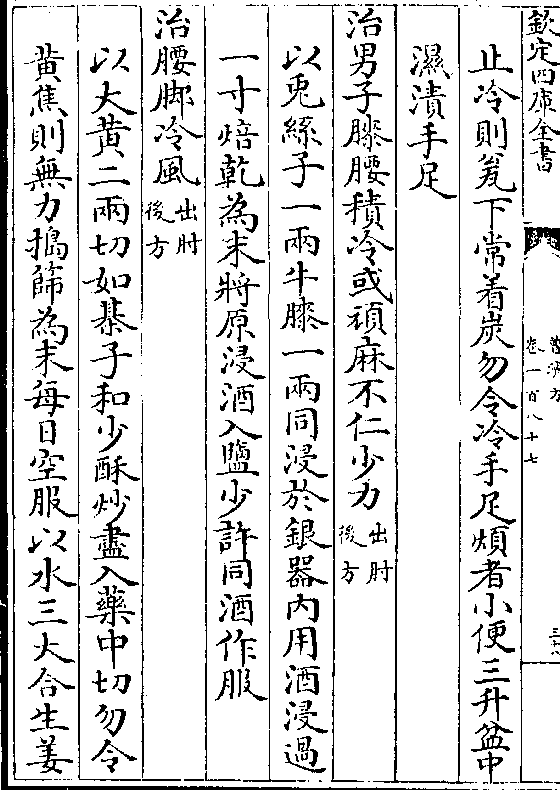 欽定四庫全書
卷一百八十七
止冷則䇲下常着炭勿令冷手足煩者小便三升盆中
濕漬手足
治男子膝腰積冷或頑麻不仁少力出肘後方
以兎絲子一兩牛膝一兩同浸於銀器内用酒浸過
一寸焙乾為末將原浸酒入鹽少許同酒作服
治腰脚冷風出肘後方
以大黄二兩切如棊子和少酥炒盡入藥中切勿令
黄焦則無力搗篩為末每日空服以水三大合生姜